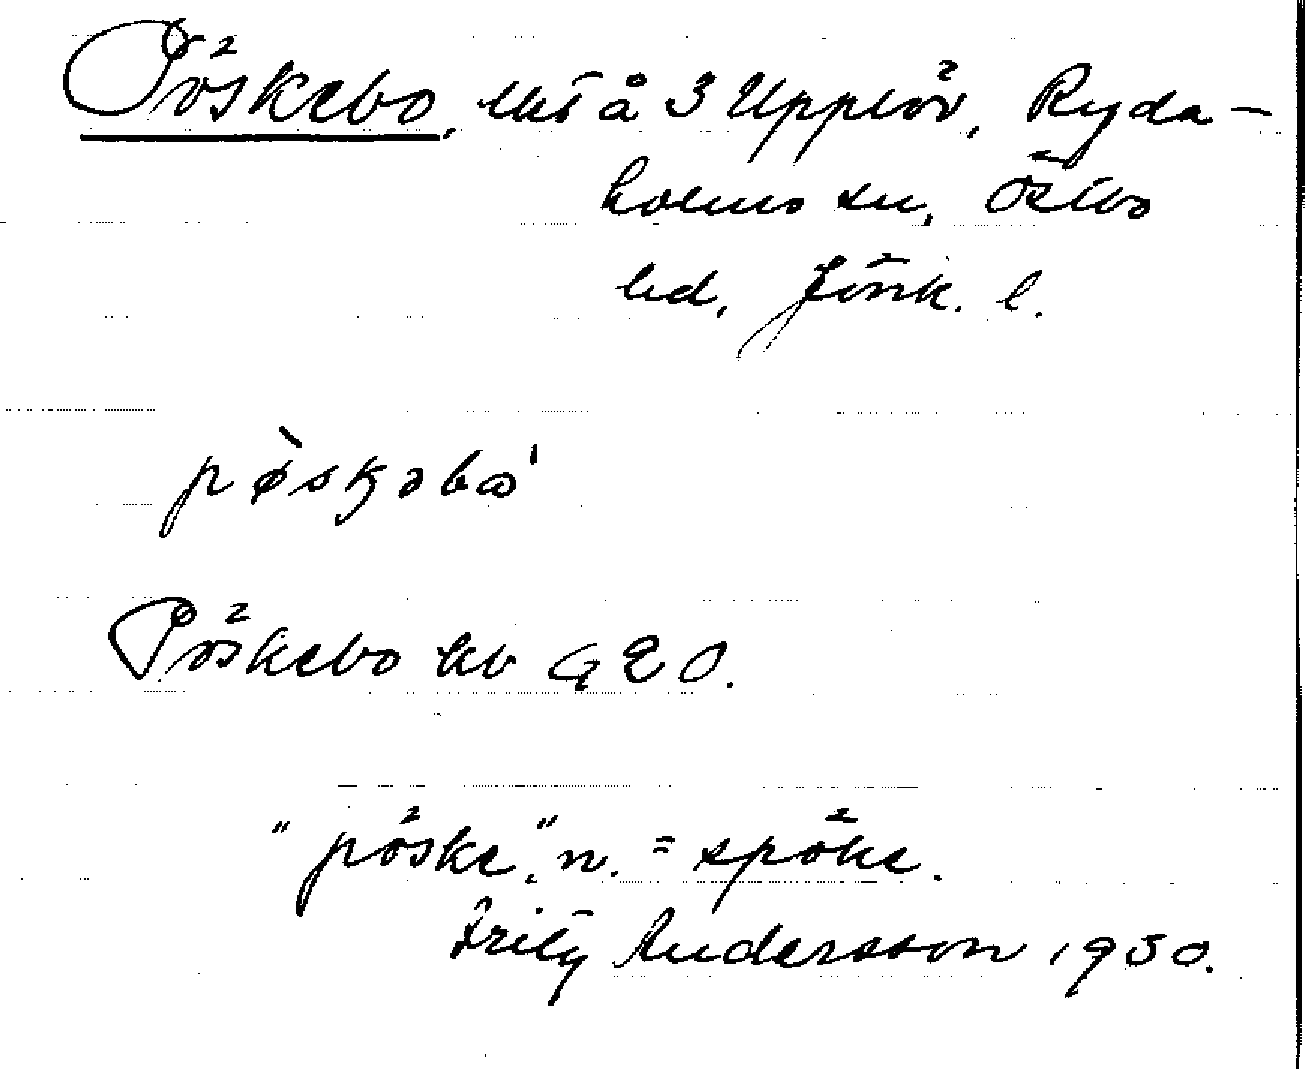 Pöskebo, lht å 3 Upplöv, Ryda-
holms sn, Östbo
hd, Jönk. l.
pø̀skəbω'
Pöskebo kb G 20.
"pöske," n. = spöke.
Fritz Andersson 1930.